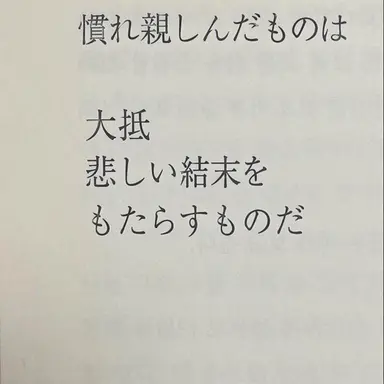 慣れ親しんだものは
大抵
悲しい結末を
もたらすものだ